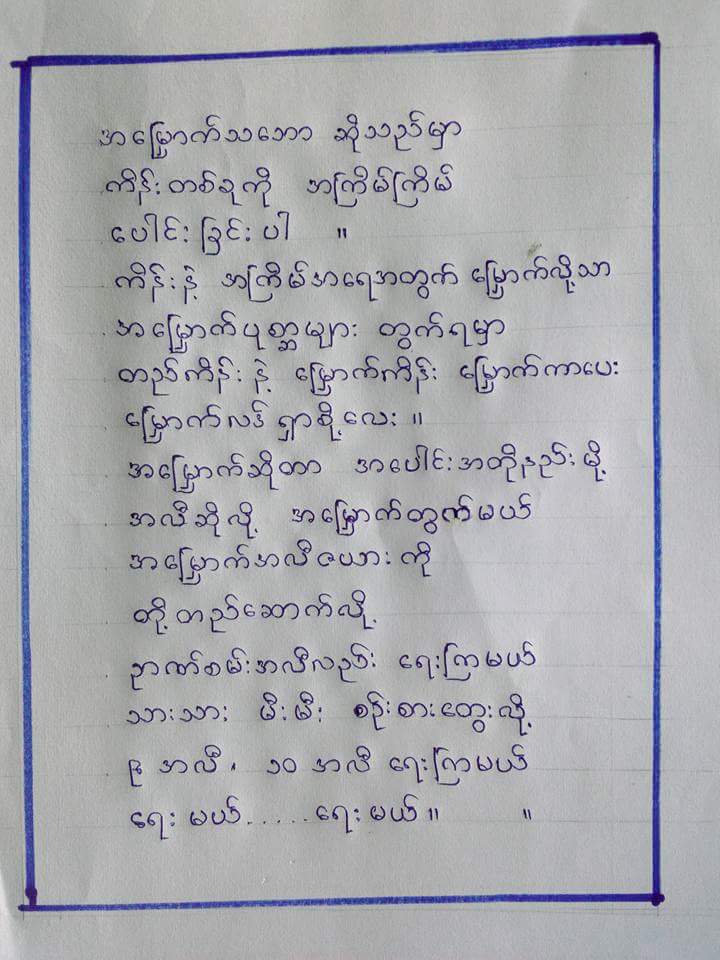 အမြှောက်သဘော ဆိုသည်မှာ
ကိန်းတစ်ခုကို အကြိမ်ကြိမ်
ပေါင်းခြင်းပါ ။
ကိန်းနဲ့ အကြိမ်အရေအတွက် မြှောက်လို့သာ
အမြှောက်ပုစ္ဆာများ တွက်ရမှာ
တည်ကိန်းနဲ့ မြှောက်ကိန်း မြှောက်ကာပေး
မြှောက်လဒ် ရှာစို့လေး ။
အမြှောက်ဆိုတာ အပေါင်းအတိုနည်းမို့
အလီဆိုလို့ အမြှောက်တွက်မယ်
အမြှောက်အလီဇယားကို
တို့တည်ဆောက်လို့
ဉာဏ်စမ်းအလီလည်း ရေးကြမယ်
သားသား မီးမီး စဉ်းစားတွေးလို့
၉ အလီ ၊ ၁၀ အလီ ရေးကြမယ်
ရေးမယ်......ရေးမယ်။ ။